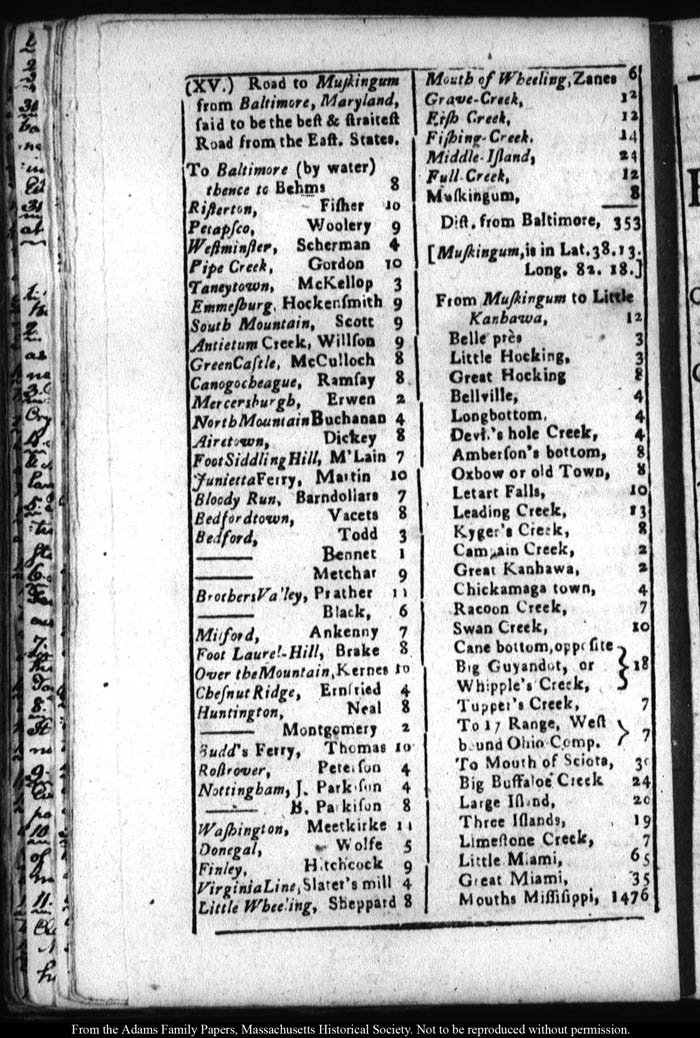 (XV.) Road to Muſkingum
from Baltimore, Maryland,
ſaid to be the beſt & ſtraiteſt
Road from the Eaſt. States.
To Baltimore (by water)
thence to Behms 8
Riſterton, Fiſher 10
Petapſco, Woolery 9
Weſtminſter, Scherman 4
Pipe Creek, Gordon 10
Taneytown, McKellop 3
Emmeſburg, Hockenſmith 9
South Mountain, Scott 9
Antietum Creek, Willſon 9
GreenCaſtle, McCulloch 8
Canogocheague, Ramſay 8
Mercersburgh, Erwen 2
North Mountain Buchanan 4
Airetown, Dickey 8
Foot Siddling Hill, M'Lain 7
Junietta Ferry, Martin 10
Bloody Run, Barndollars 7
Bedfordtown, Vacets 8
Bedford, Todd 3
—— Bennet 1
—— Metchar 9
Brothers Valley, Prather 11
—— Black, 6
Milford, Ankenny 7
Foot Laurel-Hill, Brake 8
Over the Mountain, Kernes 10
Cheſnut Ridge, Ernſried 4
Huntington, Neal 8
—— Montgomery 2
Budd's Ferry, Thomas 10
Roſtrover, Peterſon 4
Nottingham, J. Parkiſon 4
—— B. Parkiſon 8
Waſhington, Meetkirke 11
Donegal, Wolfe 5
Finley, Hitchcock 9
Virginia Line, Slater's mill 4
Little Wheeling, Sheppard 8
Mouth of Wheeling, Zanes 6
Grave-Creek, 12
Fiſh Creek, 12
Fiſhing-Creek, 14
Middle-Iſland, 24
Full Creek, 12
Muſkingum, 8
Diſt. from Baltimore, 353
[Muſkingum, is in Lat. 38. 13.
Long. 82. 18.]
From Muſkingum to Little
Kanhawa, 12
Belle près 3
Little Hocking, 3
Great Hocking 8
Bellville, 4
Longbottom, 4
Devl.'s hole Creek, 4
Amberſon's bottom, 8
Oxbow or old Town, 8
Letart Falls, 10
Leading Creek, 13
Kyger's Creek, 8
Campain Creek, 2
Great Kanhawa, 2
Chickamaga town, 4
Racoon Creek, 7
Swan Creek, 10
Cane bottom, oppoſite
Big Guyandot, or } 18
Whipple's Creek,
Tupper's Creek, 7
To 17 Range, Weſt
bound Ohio Comp. } 7
To Mouth of Sciota, 30
Big Buffaloe Creek 24
Large Iſland, 20
Three Iſlands, 19
Limeſtone Creek, 7
Little Miami, 65
Great Miami, 35
Mouths Miſſiſippi, 1476
From the Adams Family Papers, Massachusetts Historical Society. Not to be reproduced without permission.